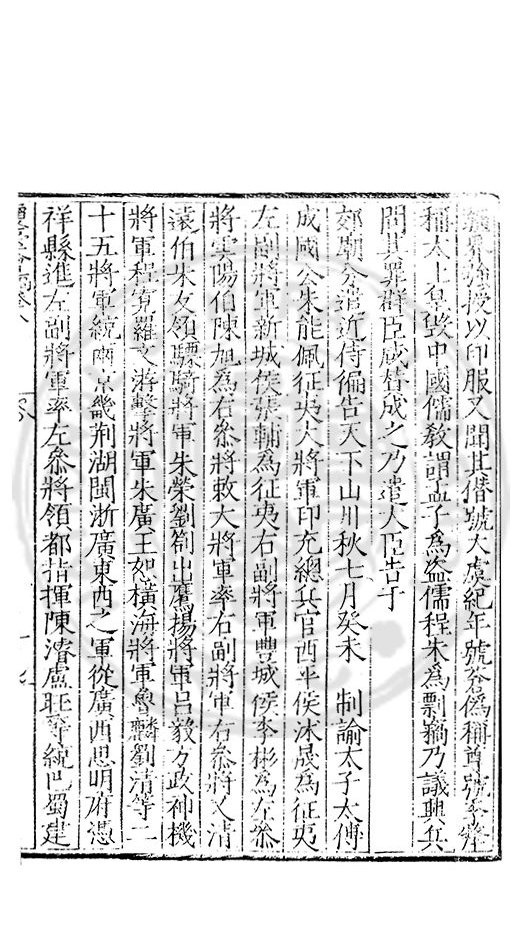 封授以印服又聞其僭號大虞紀年號容偽稱尊號季犛
稱太上皇毀中國儒教謂孟子為盜儒程朱為剽竊乃議興兵
問其罪群臣咸替成之乃遣大臣告于
郊廟分遣近侍徧告天下山川秋七月癸未 制諭太子太傅
成國公朱能佩征夷大將軍印充總兵官西平侯沐晟為征夷
左副將軍新城侯張輔為征夷右副將軍豐城侯李彬為左叅
將雲陽伯陳旭為右叅將敕大將軍率右副將軍右叅將又清
遠伯朱友領驃騎將軍朱榮劉劄出鷹揚將軍呂毅方政神機
將軍程寬羅文游擊將軍朱廣王恕橫海將軍魯麟劉清等二
十五將軍統兩京畿荆湖閩浙廣東西之軍從廣西思明府憑
祥縣進左副將軍率左叅將領都指揮陳濬盧旺等統巴蜀建